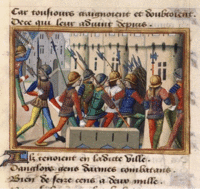 Car tousiours craignoient et doubtoient
De ce qui leur advint depuis.
Ilz tenoient en ladite ville.
Danglois gens darmes combatans
Bien de seize cens a deux mille.